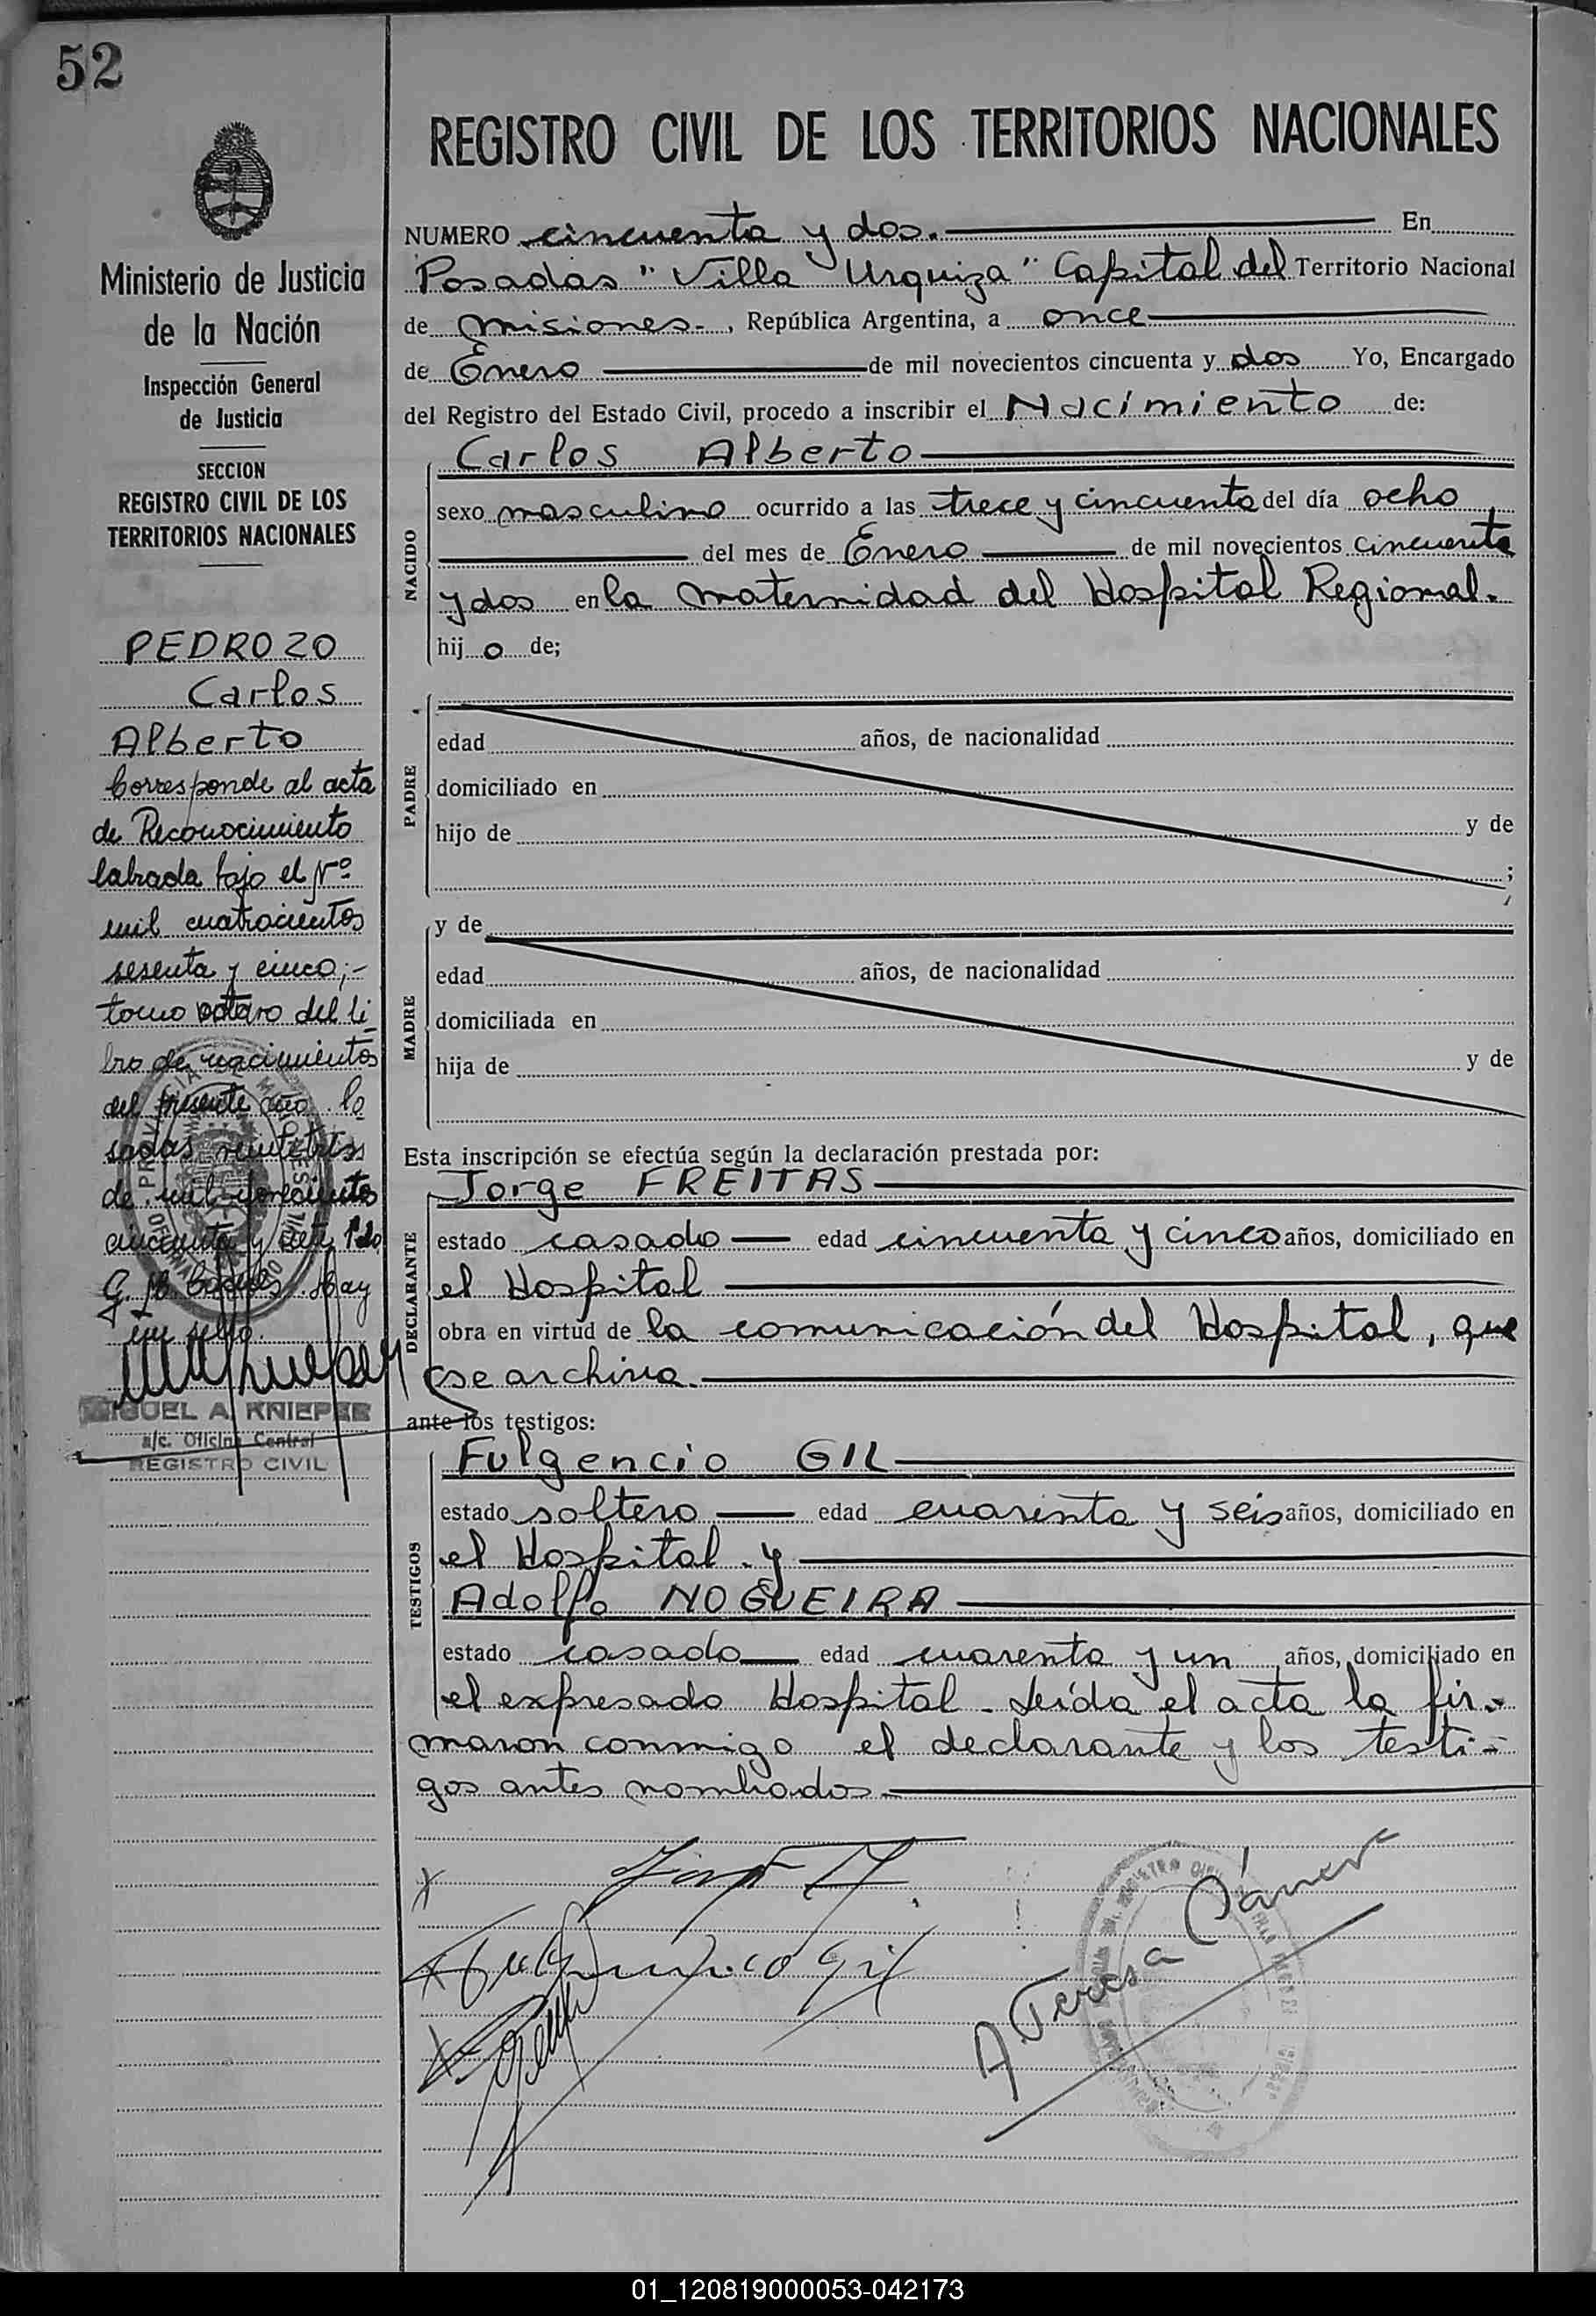 52
REGISTRO CIVIL DE LOS TERRITORIOS NACIONALES
Ministerio de Justicia
de la Nación
Inspección General
de Justicia
SECCION
REGISTRO CIVIL DE LOS
TERRITORIOS NACIONALES
PEDROZO
Carlos
Alberto
Corresponde al acta
de Reconocimiento
labrada bajo el Nº
mil cuatrocientos
sesenta y cinco;-
tomo octavo del li
bro de nacimientos
del presente año. Po
sadas veintitrés
de mil novecientos
cincuenta y siete
Hay
un sello.
MIGUEL A. KNIEPER
a/c. Oficina Central
REGISTRO CIVIL
NUMERO cincuenta y dos. En
Posadas "Villa Urquiza" Capital del Territorio Nacional
de Misiones-, República Argentina, a once
de Enero de mil novecientos cincuenta y dos Yo, Encargado
del Registro del Estado Civil, procedo a inscribir el Nacimiento de:
NACIDO
Carlos Alberto
sexo masculino ocurrido a las trece y cincuenta del día ocho
del mes de Enero de mil novecientos cincuenta
y dos en la maternidad del Hospital Regional.
hij o de;
PADRE
edad años, de nacionalidad
domiciliado en
hijo de y de
;
MADRE
y de
edad años, de nacionalidad
domiciliada en
hija de y de
Esta inscripción se efectúa según la declaración prestada por:
DECLARANTE
Jorge FREITAS
estado casado edad cincuenta y cinco años, domiciliado en
el Hospital
obra en virtud de la comunicación del Hospital, que
se archiva.
ante los testigos:
TESTIGOS
Fulgencio GIL
estado soltero edad cuarenta y seis años, domiciliado en
el Hospital. y
Adolfo NOGUEIRA
estado casado edad cuarenta y un años, domiciliado en
el expresado Hospital - Leída el acta la fir-
maron conmigo el declarante y los testi-
gos antes nombrados.-
Fulgencio Gil
A. Teresa
01_120819000053-042173